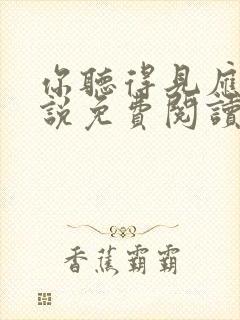 你聽得見應
說免費閱讀
香蕉霸霸